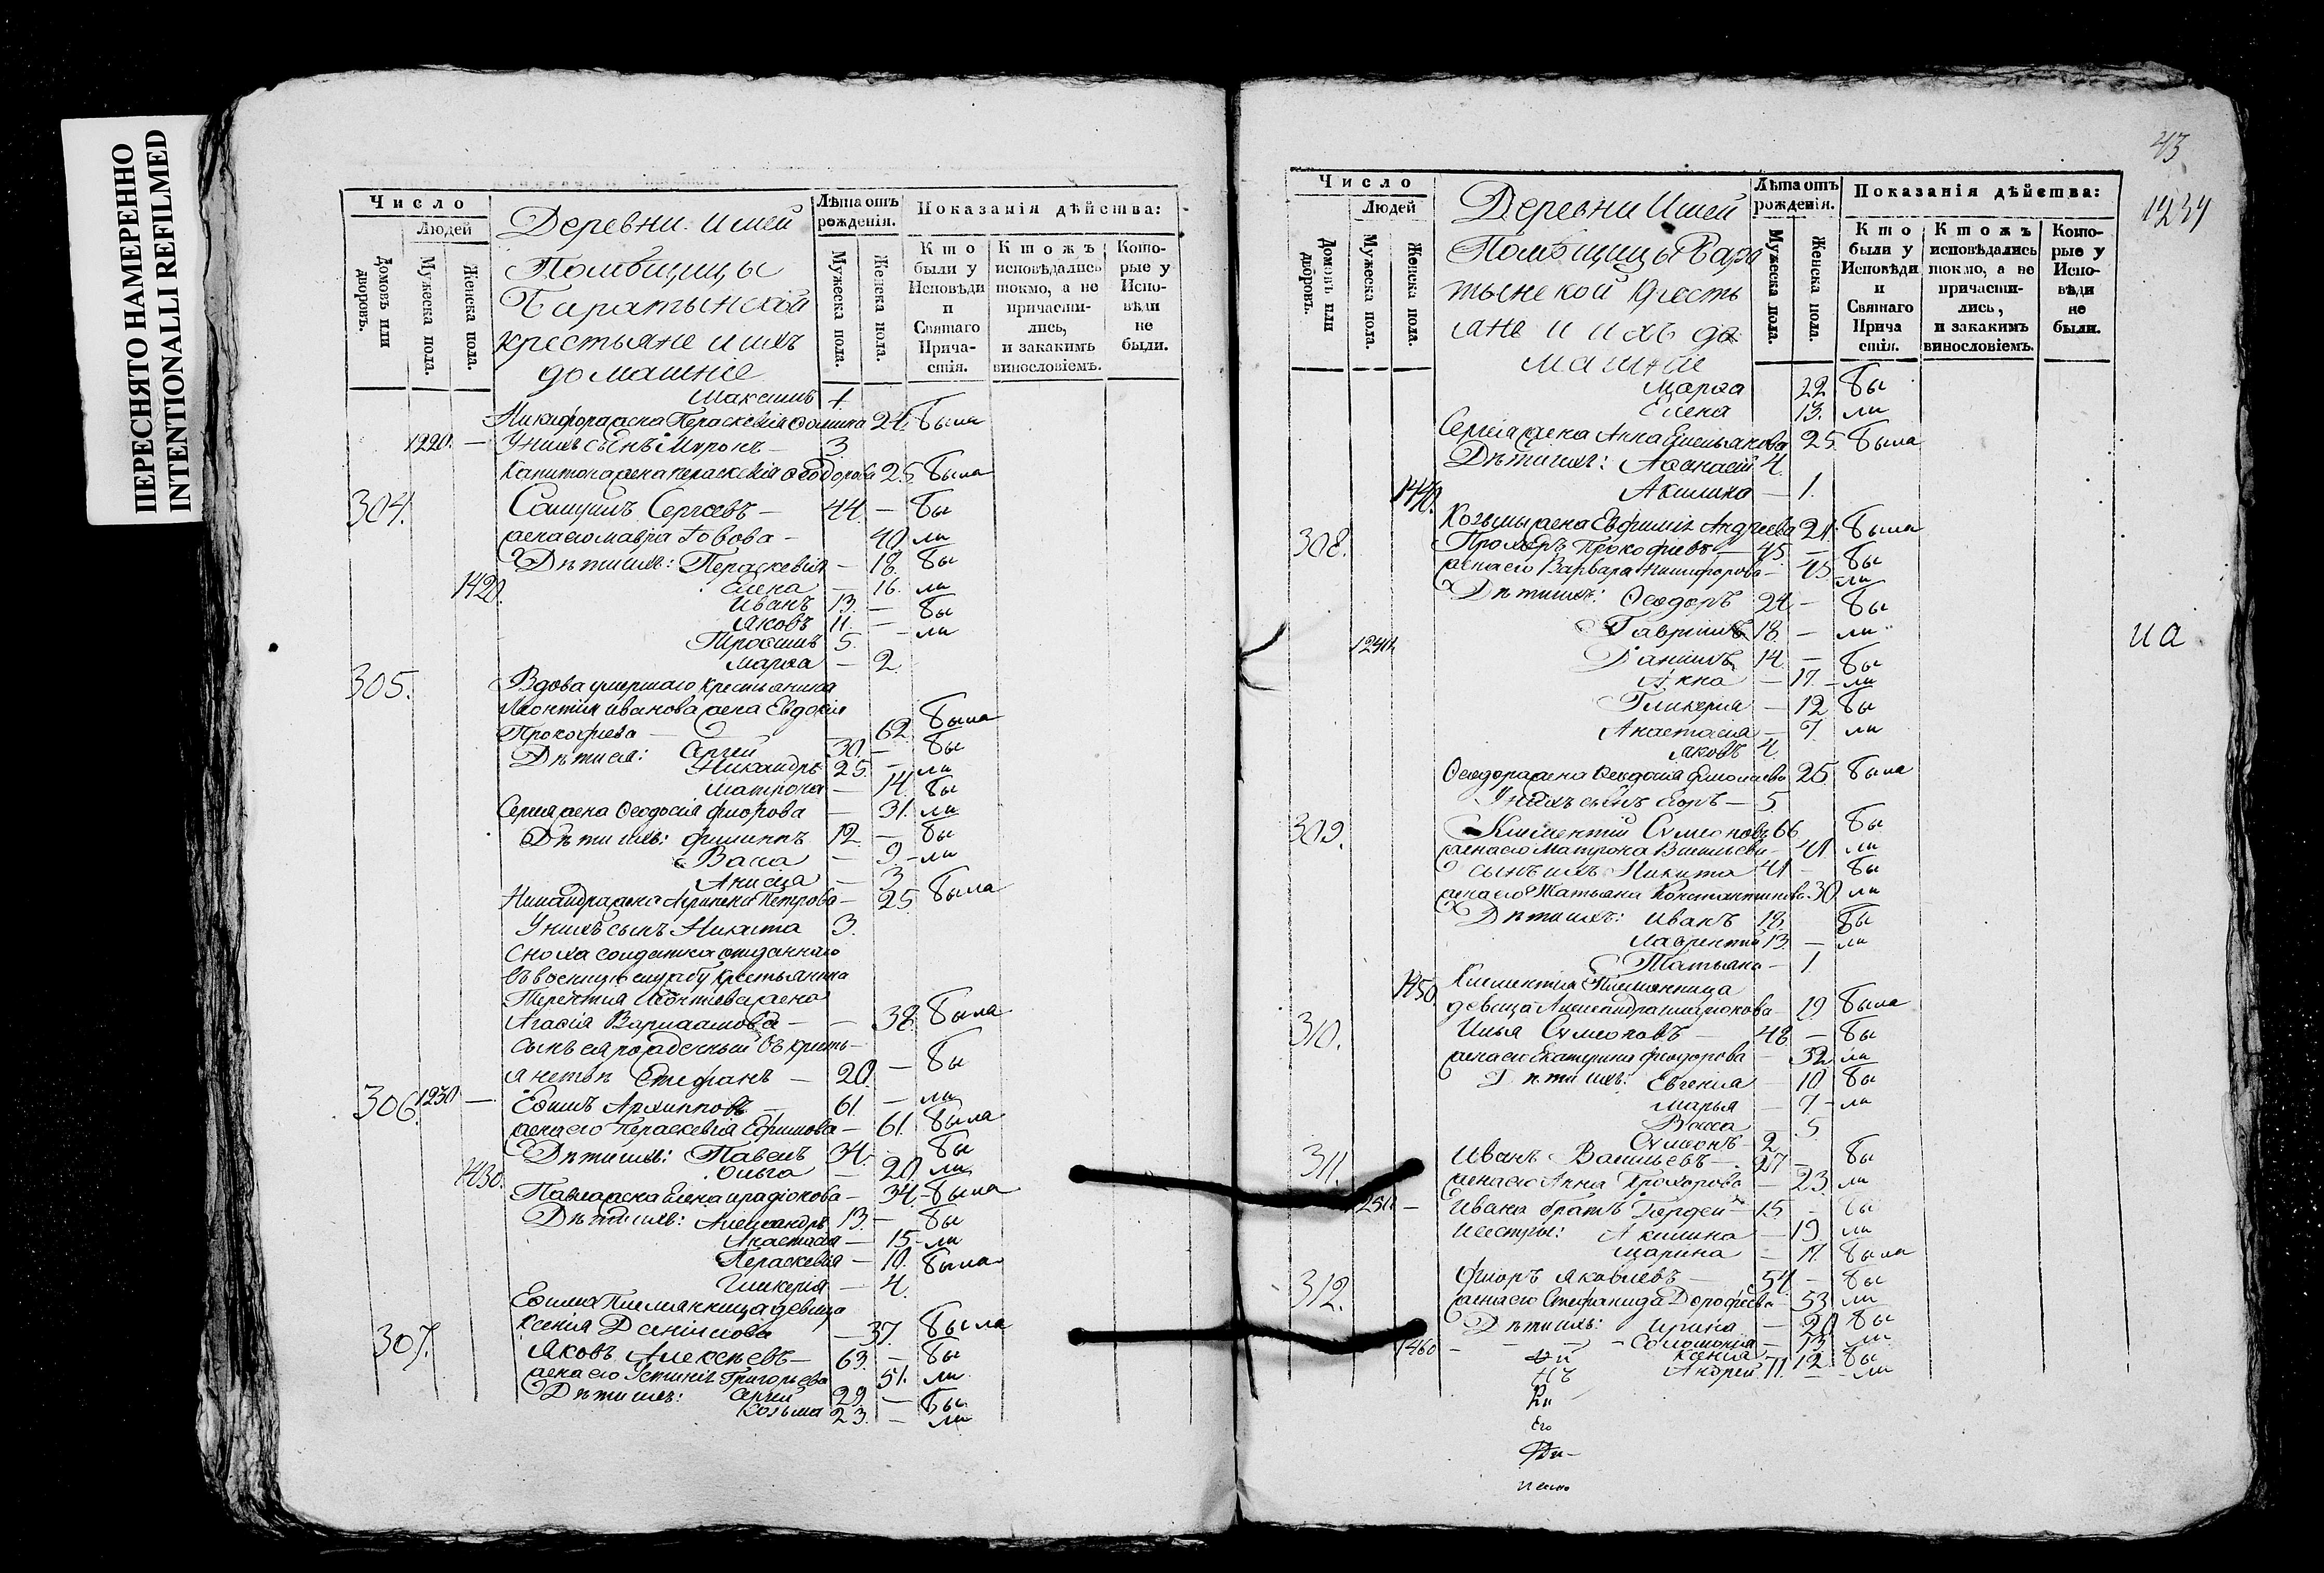 ПЕРЕСНЯТО НАМЕРЕННО
INTENTIONALLI REFILMED
Число
Людей
Домовъ или дворовъ.
Мужеска пола.
Женска пола.
Деревни Ишей
Помѣщицы
Баратынской
крестьяне и ихъ
домашніе
Лѣта отъ рожденія.
Мужеска пола.
Женска пола.
Показанія дѣйства:
Кто были у Исповѣди и Святаго Прича-стія.
Ктожъ исповѣдались токмо, а не причасти-лись, и закакимъ винословіемъ.
Кото-рые у Испо-вѣди не были.
Максимъ 1
Никифора жена Параскевія 24. была
1220. — У нихъ сынъ Миронъ — 3.
Капитона жена Параскевія Ѳеодорова 25. была
304. Самуилъ Сергѣевъ — 44. — бы
жена его Мавра — 40. ли
Дѣти ихъ: Параскевія — 18. бы
1420. Елена — 16. ли
Иванъ 13. — бы
Яковъ 11. — ли
Трофимъ 5.
Марѳа — 2.
305. Вдова умершаго крестьянина
Леонтія Иванова жена Евдокія
Прокофіева — 62. была
Дѣти ея: Сергей 30. — бы
Никандръ 25. — ли
Матрона — 14. бы
Сергея жена Ѳеодосія Флорова — 31. ли
Дѣти ихъ: Филиппъ 12. — бы
Васса — 9. — ли
Анисія — 3.
Никандра жена Агрипена Петрова — 25. была
У нихъ сынъ Никита 3.
Сноха солдатка отданнаго
въ военную службу крестьянина
Терентія Леонтьева жена
Агафія Варлаамова — — 38. была
Сынъ ея рожденный въ кресть-
янствѣ Стефанъ — 20. — бы
306. 1230 — Ефимъ Архипповъ — 61. — ли
жена его Параскевія Ефимова — 61. была
Дѣти ихъ: Павелъ 34. — бы
1430. Ольга — 20. ли
Павла жена Елена Иродіонова — 34. — была
Дѣти ихъ: Александръ 13. — бы
Анастасія — 15. — ли
Параскевія — 10. была
Гликерія — 4.
Ефима племянница девица
Ксенія Даніилова — 37. была
307. Яковъ Алексѣевъ — 63. — бы
жена его Устинія Григорьева 51. ли
Дѣти ихъ: Сергей 29. — бы
Козьма 23. — ли
43
1234
Число
Людей
Домовъ или дворовъ.
Мужеска пола.
Женска пола.
Деревни Ишей
Помѣщицы Бара
тынской кресть
яне и ихъ до
машніе
Лѣта отъ рожденія.
Мужеска пола.
Женска пола.
Показанія дѣйства:
Кто были у Исповѣди и Святаго Прича стія.
Ктожъ исповѣдались токмо, а не причасти-лись, и закакимъ винословіемъ.
Кото-рые у Испо-вѣди не были.
Марѳа 22 бы
Елена 13. ли
Сергея жена Анна Емельянова 25. была
Дѣти ихъ: Аѳанасій 4.
1440. Акилина — 1.
Козьмы жена Евфимія Андреева 21. была
308. Прохоръ Прокофіевъ — 45 — бы
жена его Варвара Никифорова — 45 ли
Дѣти ихъ: Ѳеодоръ 24 — бы
1240. Гавриилъ 18 — ли
Даніилъ 14. — бы
Анна — 17. — ли
Гликерія — 12 бы
Анастасія — 7. ли
Яковъ 4.
Ѳеодора жена Ѳеодосія 25. была
У нихъ сынъ Егоръ — 5
309. Климентій Симеоновъ 66 бы
жена его Матрона Васильева — 41 ли
Сынъ ихъ Никита 41 — бы
жена его Татьяна Константинова 30. ли
Дѣти ихъ: Иванъ 18. бы
Лаврентій 13. — ли
Татьяна — 1
1450. Климентія племянница
девица Александра Иларіонова — 19 была
310. Илья Симеоновъ — 48 — бы
жена его Екатерина Феодорова — 32 ли
Дѣти ихъ: Евгенія — 10 бы
Марья — 7. — ли
Васса — 5
Симеонъ 2
311. Иванъ Васильевъ — 27 — бы
жена его Анна Прохорова — 23. ли
1250 — Ивана братъ Гордей 15. — бы
и сестры: Акилина — 19. ли
Марина — 17. была
312. Флоръ Яковлевъ — 54 — бы
жена его Стефанида Дорофеева — 53 ли
Дѣти ихъ: Ирина — 20 бы
1460 — Соломонія — 13. ли
Ксенія — 12. бы
Андрей 11. — ли
на
Его